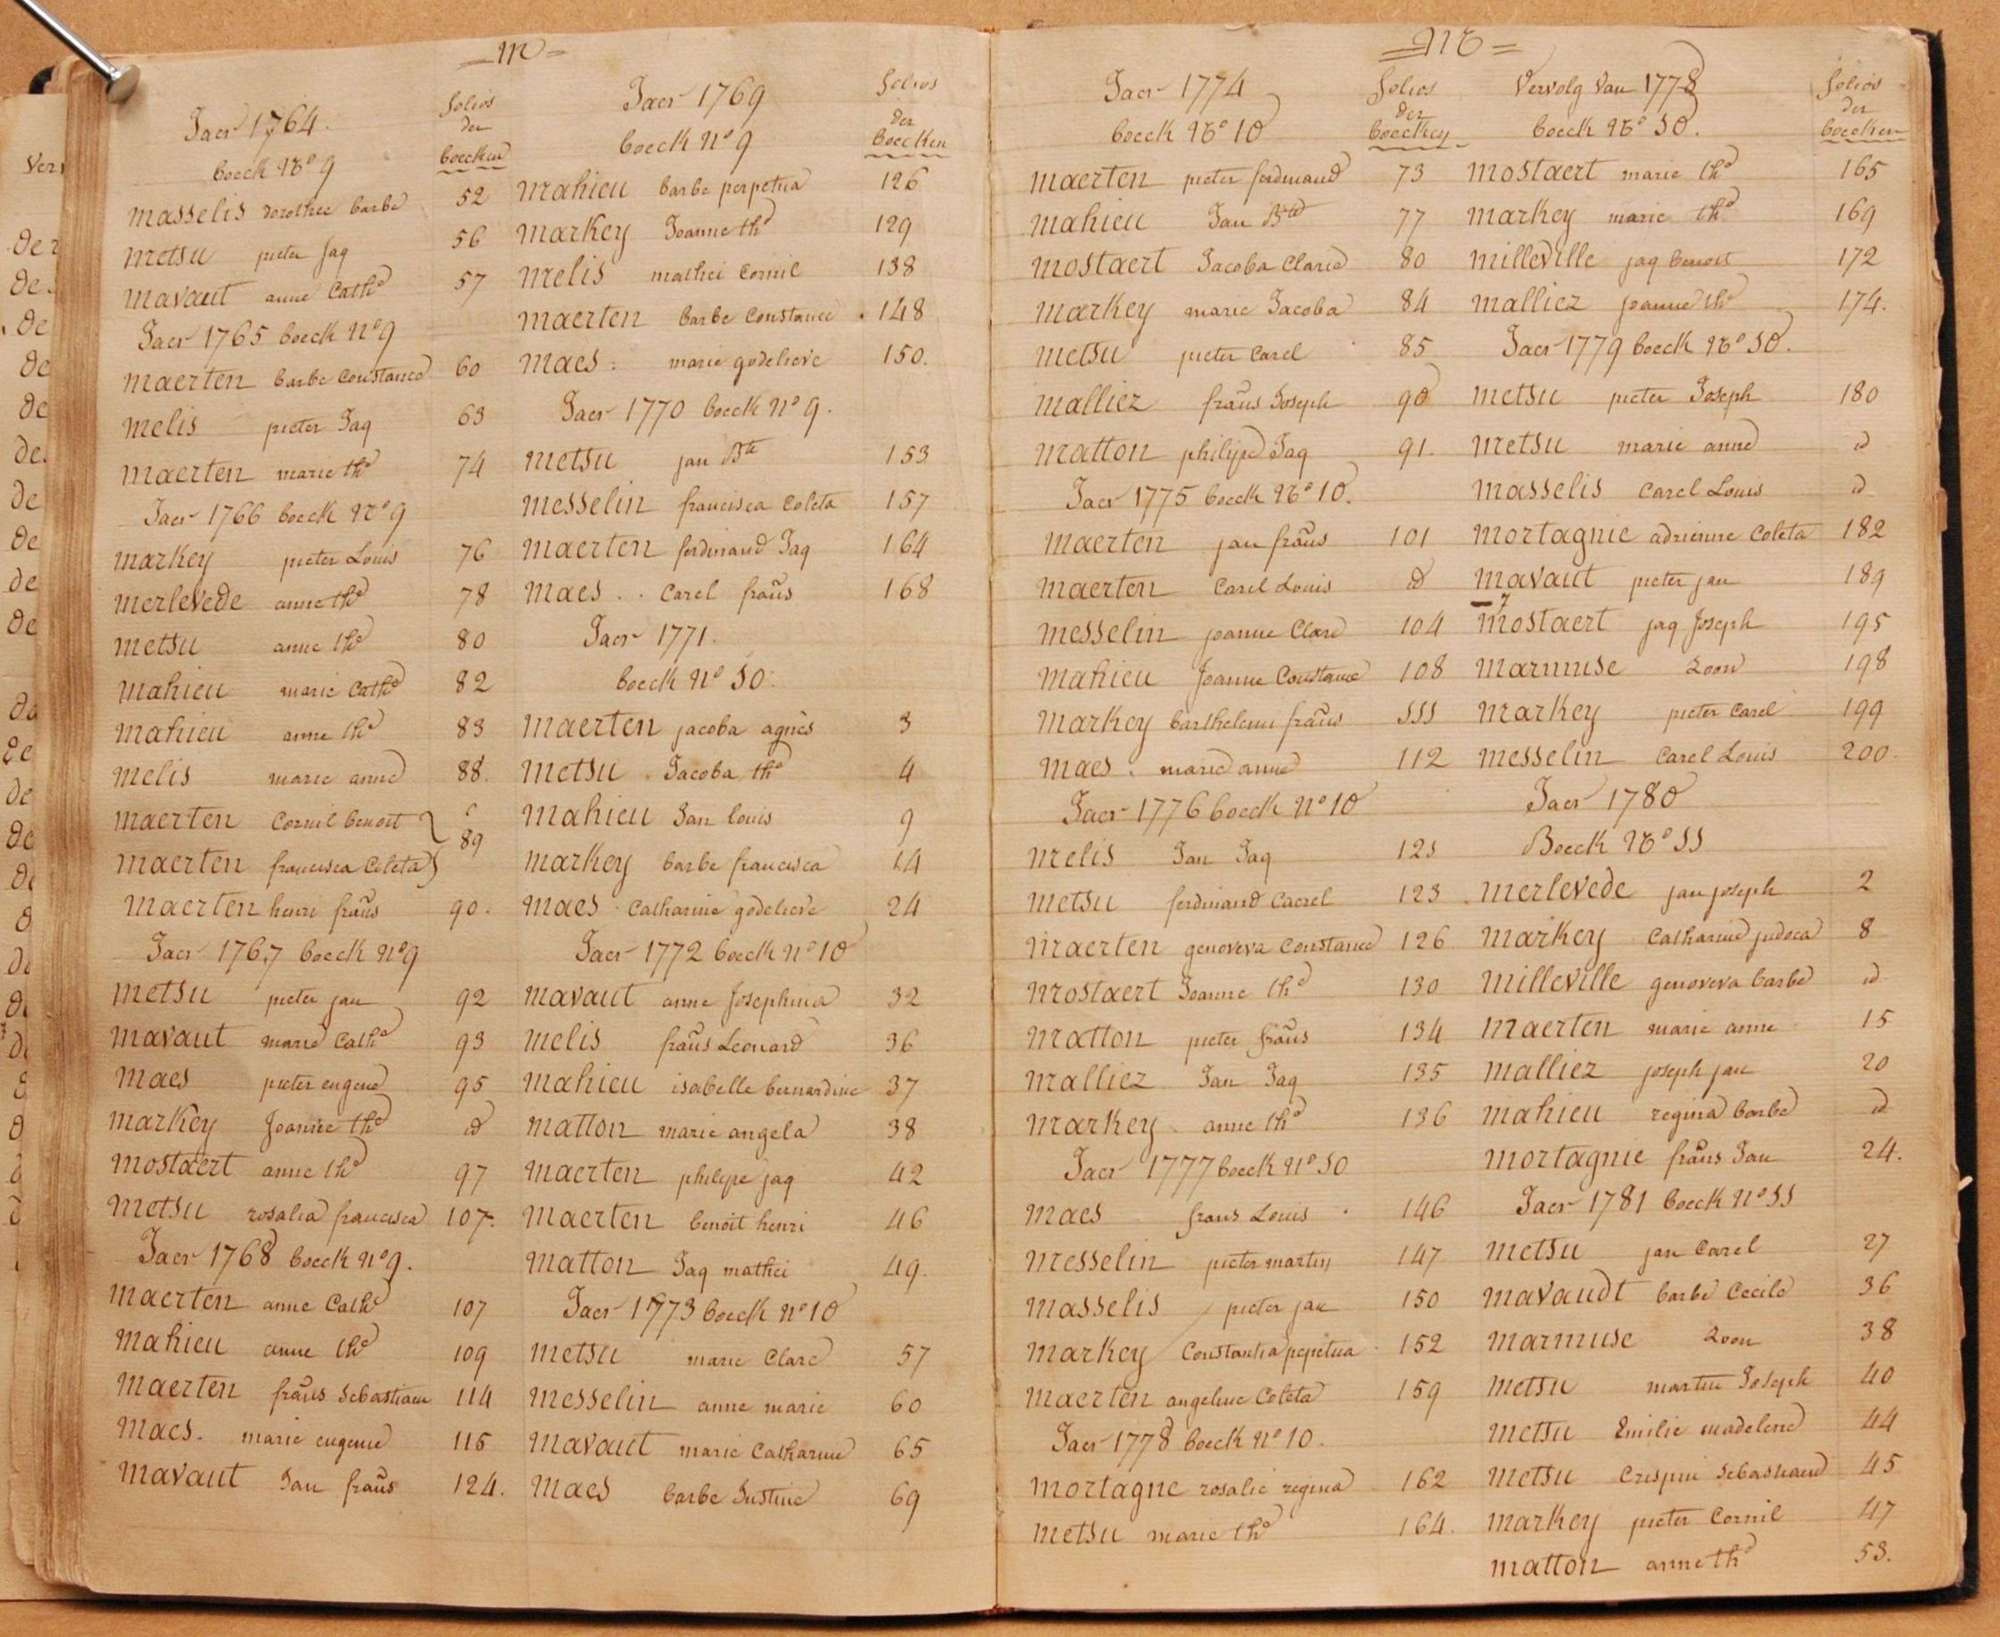 M
Jaer 1764.
boeck No 9
folios
der
boecken
masselis dorothee barbe 52
metsu pieter jaq 56
mavaut anne Cathe 57
Jaer 1765 boeck No 9
maerten barbe Constance 60
melis pieter Jaq 63
maerten marie the 74
Jaer 1766 boeck No 9
markey pieter Louis 76
merlevede anne the 78
metsu anne the 80
mahieu marie Cathe 82
mahieu anne the 83
melis marie anne 88.
maerten Cornil benoit
89
maerten francisca Coleta
maerten henri frans 90.
Jaer 1767 boeck No 9
metsu pieter jan 92
mavaut marie Cathe 93
maes pieter eugene 95
markey Joanne the id
mostaert anne the 97
metsu rosalia francisca 107.
Jaer 1768 boeck No 9.
maerten anne Cathe 107
mahieu anne the 109
maerten frans Sebastiaen 114
maes. marie eugenie 116
mavaut Jan frans 124.
Jaer 1769
boeck No 9
folios
der
boecken
mahieu barbe perpetua 126
markey Joanne the 129
melis mathei Cornil 138
maerten barbe Constance 148
maes: marie godelieve 150.
Jaer 1770 boeck No 9.
metsu jan Bte 153
messelin francisca Coleta 157
maerten ferdinand Jaq 164
maes.. Carel frans 168
Jaer 1771.
boeck No 10.
maerten jacoba agnes 3
metsu. Jacoba the 4
mahieu Jan louis 9
markey barbe francisca 14
maes Catharine godelieve 24
Jaer 1772 boeck No 10
mavaut anne Josephina 32
melis frans Leonard 36
mahieu isabelle bernardine 37
matton marie angela 38
maerten philipe jaq 42
maerten benoit henri 46
matton Jaq mathei 49.
Jaer 1773 boeck No 10
metsu marie Clare 57
messelin anne marie 60
mavaut marie Catharine 65
maes barbe Justine 69
M
Jaer 1774
boeck No 10
folios
der
boecken
maerten pieter ferdinand 73
mahieu Jan Bte 77
mostaert Jacoba Clare 80
markey marie Jacoba 84
metsu pieter Carel 85
malliez frans Joseph 90
matton philipe Jaq 91.
Jaer 1775 boeck No 10.
maerten jan frans 101
maerten Carel Louis id
messelin joanne Clare 104
mahieu Joanne Constance 108
markey barthelemi frans 111
maes. marie anne 112
Jaer 1776 boeck No 10
melis Jan Jaq 121
metsu ferdinand Caerel 123
maerten genoveva Constance 126
mostaert Joanne the 130
matton pieter frans 134
malliez Jan Jaq 135
markey anne the 136
Jaer 1777 boeck No 10
maes frans Louis 146
messelin pieter martin 147
masselis pieter jan 150
markey Constantia pepetua 152
maerten angeline Coleta 159
Jaer 1778 boeck No 10.
mortagne rosalie regina 162
metsu marie the 164.
Vervolg Van 1778
boeck No 10.
folios
der
boecken
mostaert marie the 165
markey marie the 169
milleville jaq benoit 172
malliez joanne the 174.
Jaer 1779 boeck No 10.
metsu pieter Joseph 180
metsu marie anne id
masselis Carel Louis id
mortagnie adrienne Coleta 182
mavaut pieter jan 189
mostaert jaq Joseph 195
marmuse Zoon 198
markey pieter Carel 199
messelin Carel Louis 200.
Jaer 1780
Boeck No 11
merlevede jan joseph 2
markey Catharine judoca 8
milleville genoveva barbe id
maerten marie anne 15
malliez joseph jan 20
mahieu regina barbe id
mortagnie frans Jan 24.
Jaer 1781 boeck No 11
metsu jan Carel 27
mavaudt barbe Cecile 36
marmuse Zoon 38
metsu martin Joseph 40
metsu Emilie madelene 44
metsu Crispin Sebastiaen 45
markey pieter Cornil 47
matton anne the 53.